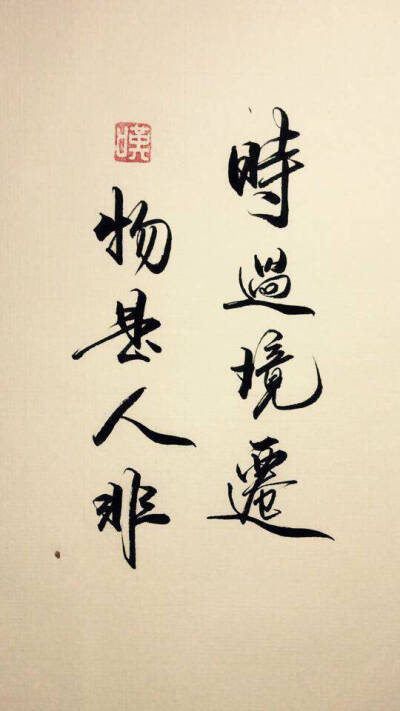 時過境遷
物是人非
嘆